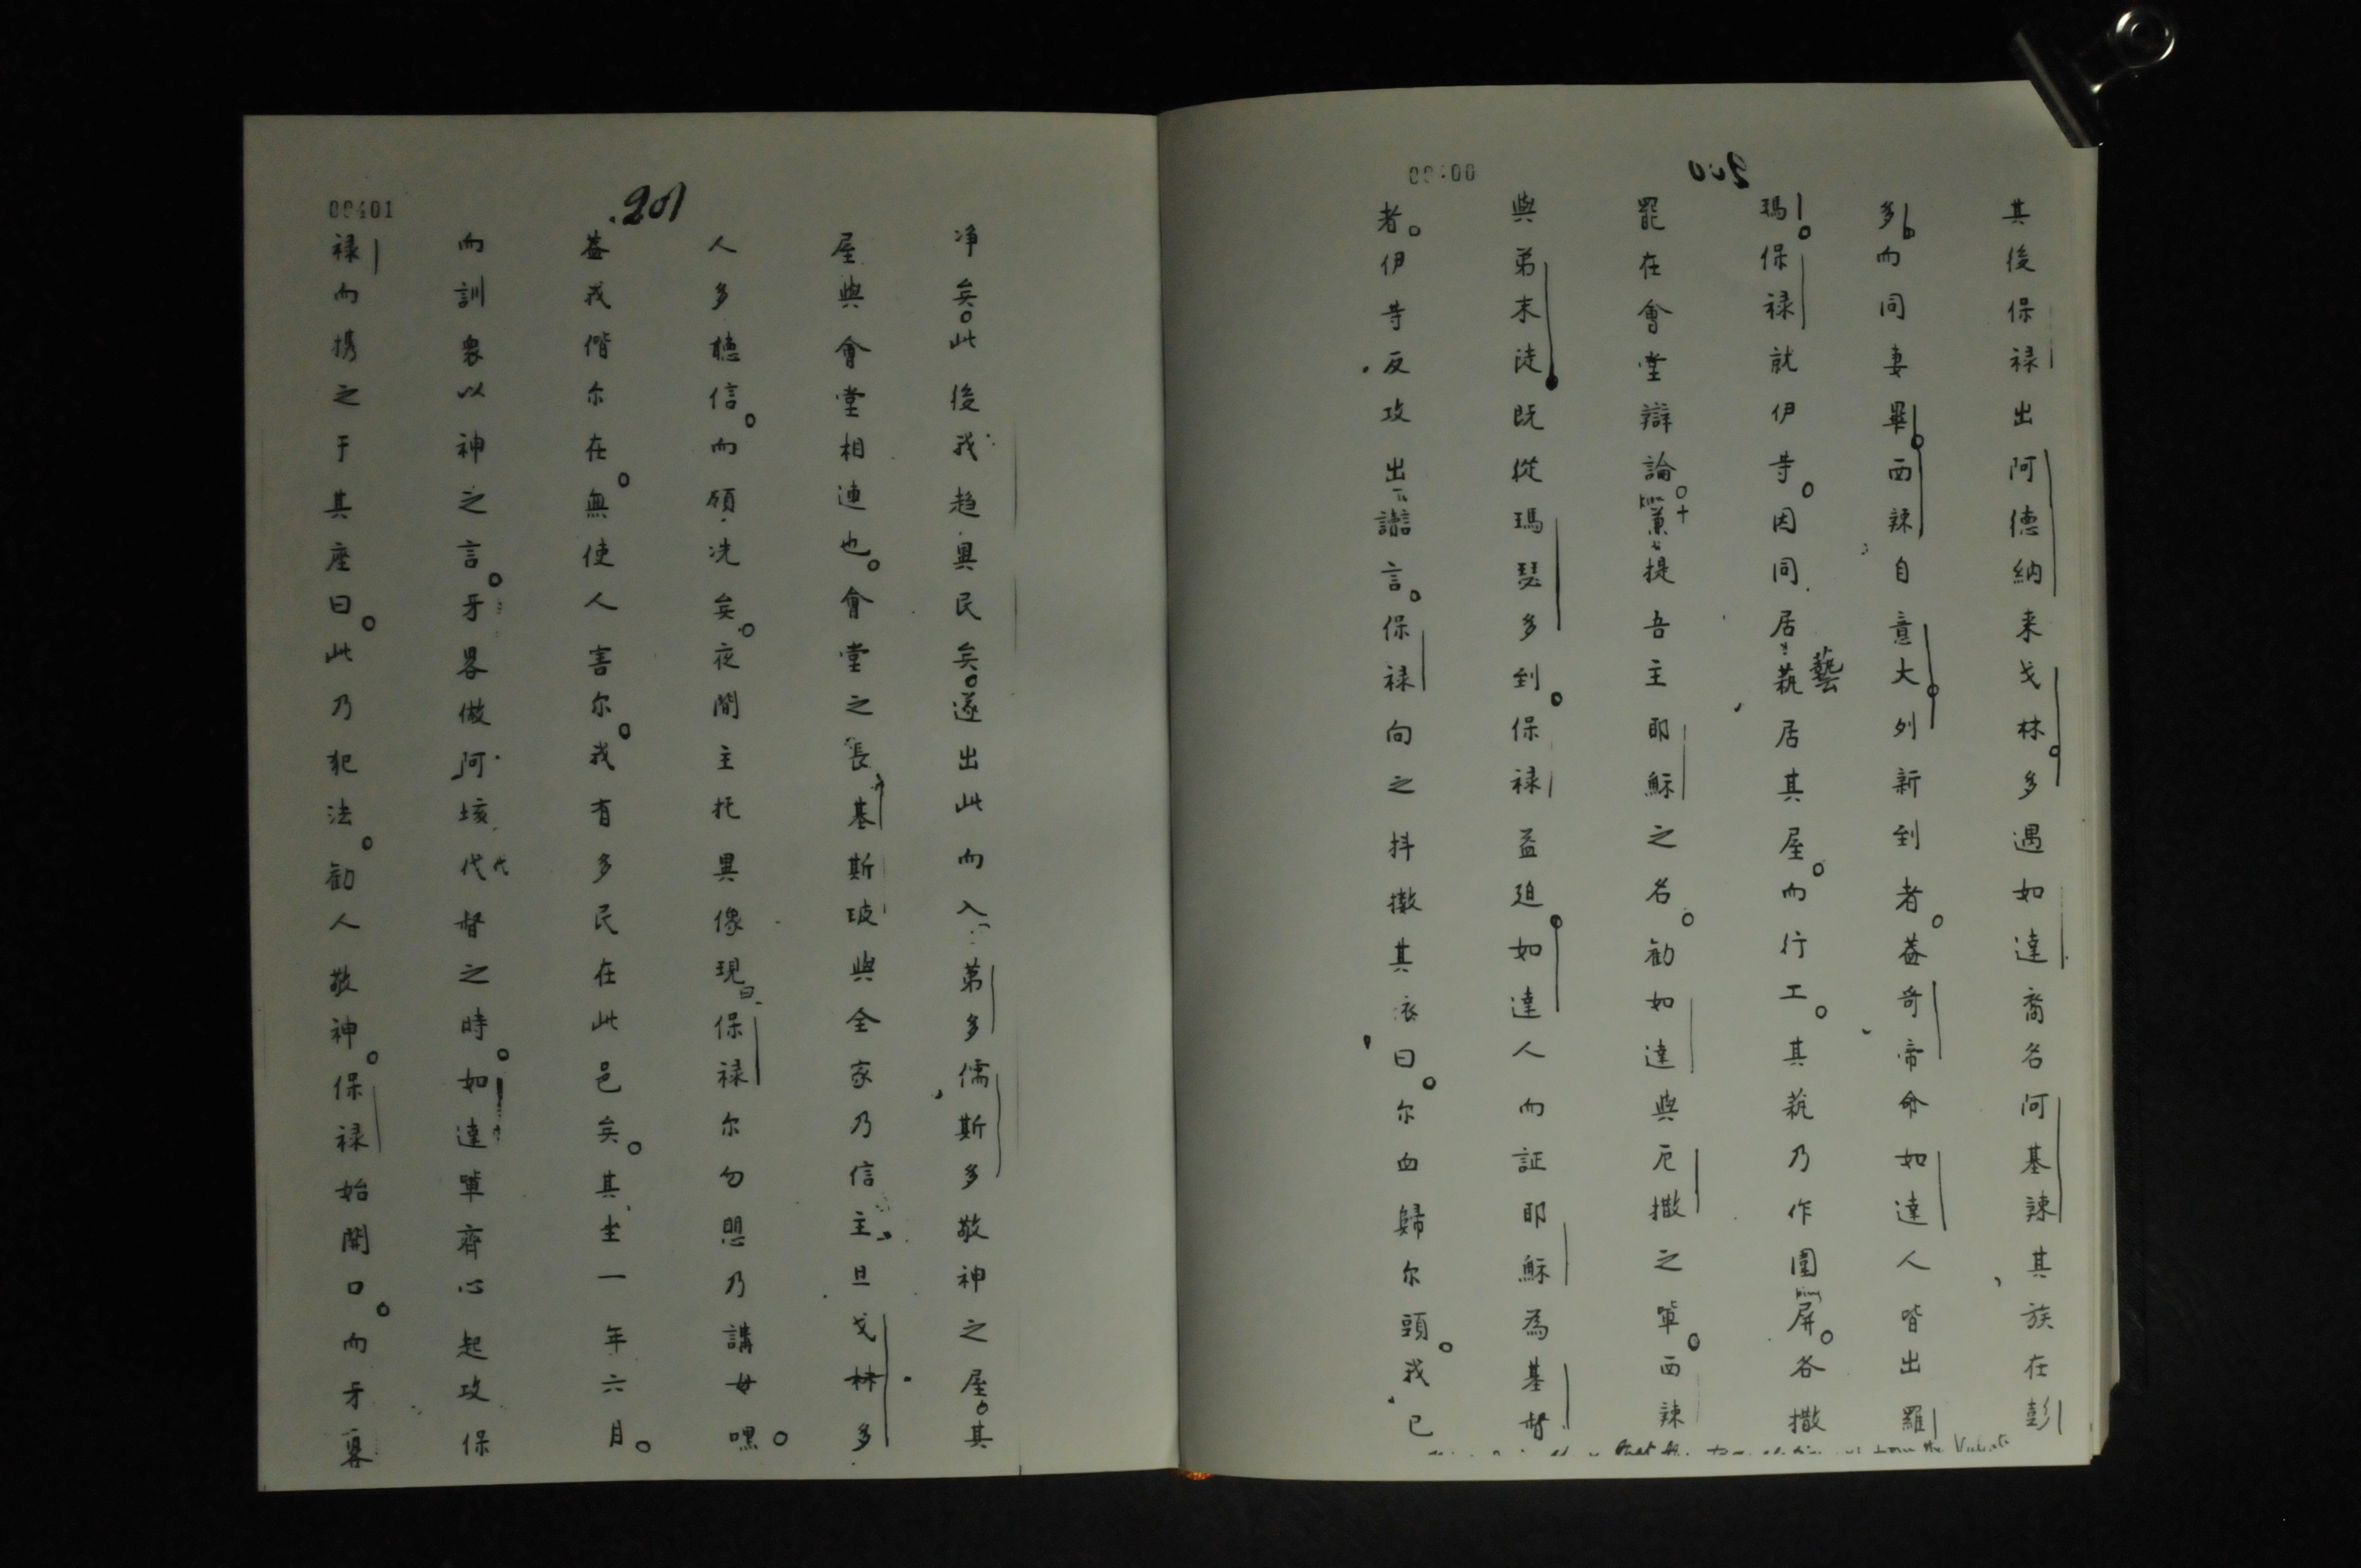 00400
200
其後保禄出阿德納来戈林。多遇如達裔名阿基辣其族在彭
多。而同妻畢。西辣自意大。列新到者。葢奇帝命如達人皆出羅
瑪。保禄就伊等。因同居藝蓺居其屋。而行工。其蓺乃作圍屏。各撒
罷在會堂辯論。兼提吾主耶穌之名。勸如達與厄撒之軰。西辣
與弟末徒既從瑪瑟多到。保禄益迫。如達人而証耶穌為基督
者。伊等反攻出讟言。保禄向之抖擻其衣曰。尔血歸尔頭。我已
that the from the
00401
201
净矣。此後我趋異民矣。遂出此而入第多儒斯多敬神之屋。其
屋與會堂相連也。會堂之長基斯玻與全家乃信主旦戈林多
人多聴信。而領洗矣。夜間主托異像現曰保禄尔勿思乃講毋嘿。
葢我偕尔在。無使人害尔。我有多民在此邑矣。其坐一年六月。
而訓衆以神之言。牙畧做阿垓代代督之時。如達軰齊心起攻保
禄而携之于其座曰。此乃犯法。勸人敬神。保禄始開口。而牙畧